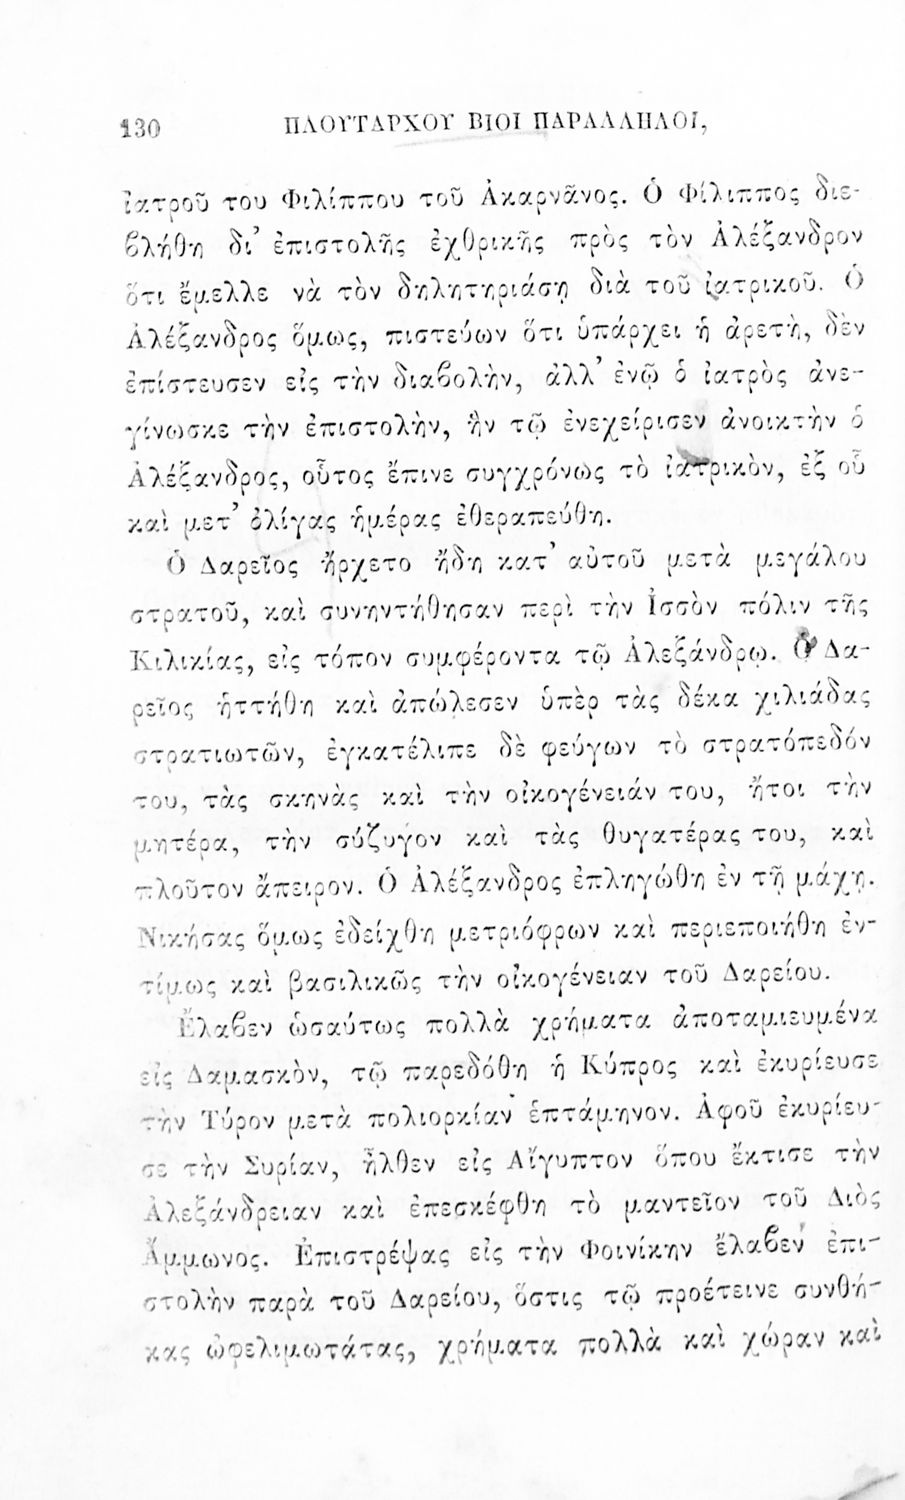 130 ΠΛΟΥΤΑΡΧΟΥ ΒΙΟΙ ΠΑΡΑΛΛΗΛΟΙ,
ἰατροῦ του Φιλίππου τοῦ Ἀκαρνᾶνος. Ὁ Φίλιππος διε-
βλήθη δι’ ἐπιστολῆς ἐχθρικῆς πρὸς τὸν Ἀλέξανδρον
ὅτι ἔμελλε νὰ τὸν δηλητηριάσῃ διὰ τοῦ ἰατρικοῦ. Ὁ
Ἀλέξανδρος ὅμως, πιστεύων ὅτι ὑπάρχει ἡ ἀρετὴ, δὲν
ἐπίστευσεν εἰς τὴν διαβολὴν, ἀλλ’ ἐνῷ ὁ ἰατρὸς ἀνε-
γίνωσκε τὴν ἐπιστολὴν, ἣν τῷ ἐνεχείρισεν ἀνοικτὴν ὁ
Ἀλέξανδρος, οὗτος ἔπινε συγχρόνως τὸ ἰατρικὸν, ἐξ οὗ
καὶ μετ’ ὀλίγας ἡμέρας ἐθεραπεύθη.
Ὁ Δαρεῖος ἤρχετο ἤδη κατ’ αὐτοῦ μετὰ μεγάλου
στρατοῦ, καὶ συνηντήθησαν περὶ τὴν Ἰσσὸν πόλιν τῆς
Κιλικίας, εἰς τόπον συμφέροντα τῷ Ἀλεξάνδρῳ. Ὁ Δα-
ρεῖος ἡττήθη καὶ ἀπώλεσεν ὑπὲρ τὰς δέκα χιλιάδας
στρατιωτῶν, ἐγκατέλιπε δὲ φεύγων τὸ στρατόπεδόν
του, τὰς σκηνὰς καὶ τὴν οἰκογένειάν του, ἤτοι τὴν
μητέρα, τὴν σύζυγον καὶ τὰς θυγατέρας του, καὶ
πλοῦτον ἄπειρον. Ὁ Ἀλέξανδρος ἐπληγώθη ἐν τῇ μάχῃ.
Νικήσας ὅμως ἐδείχθη μετριόφρων καὶ περιεποιήθη ἐν-
τίμως καὶ βασιλικῶς τὴν οἰκογένειαν τοῦ Δαρείου.
Ἔλαβεν ὡσαύτως πολλὰ χρήματα ἀποταμιευμένα
εἰς Δαμασκὸν, τῷ παρεδόθη ἡ Κύπρος καὶ ἐκυρίευσε
τὴν Τύρον μετὰ πολιορκίαν ἑπτάμηνον. Ἀφοῦ ἐκυρίευ-
σε τὴν Συρίαν, ἦλθεν εἰς Αἴγυπτον ὅπου ἔκτισε τὴν
Ἀλεξάνδρειαν καὶ ἐπεσκέφθη τὸ μαντεῖον τοῦ Διὸς
Ἄμμωνος. Ἐπιστρέψας εἰς τὴν Φοινίκην ἔλαβεν ἐπι-
στολὴν παρὰ τοῦ Δαρείου, ὅστις τῷ προέτεινε συνθή-
κας ὠφελιμωτάτας, χρήματα πολλὰ καὶ χώραν καὶ